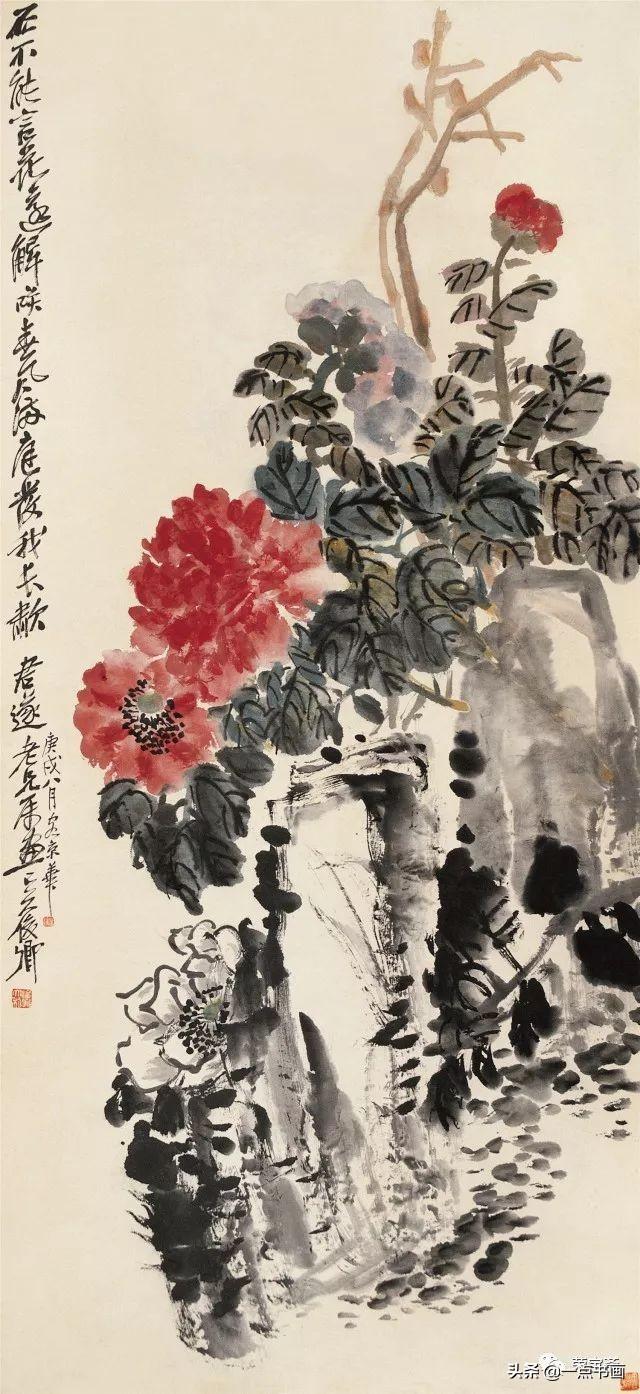 石不能言花還解咲春風滿庭發我長歗 君遂老兄屬畫 吳俊卿
庚戌八月客京華
荣宝斋
头条 @一点书画